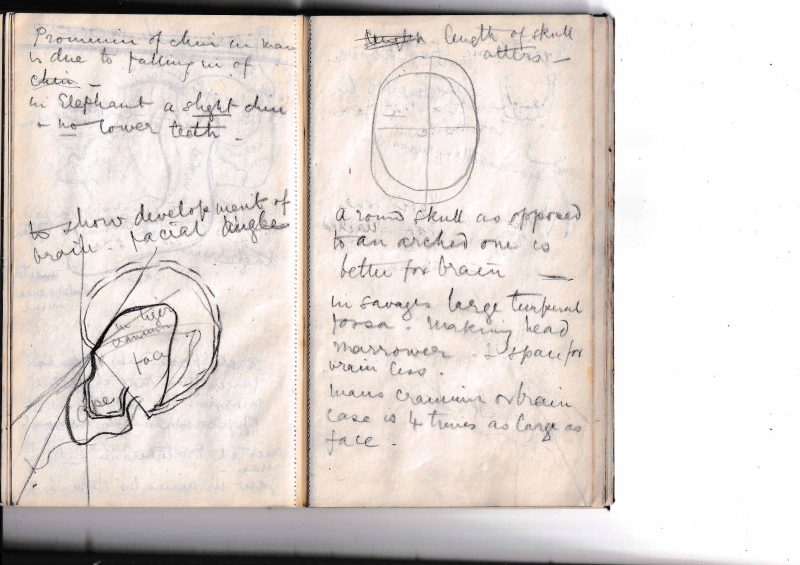 Prominin of chin in man
is due to falling in of
chin -
in Elephant a slight chin
+ no lower teeth -
to show developement of
brain. Facial Angles
in tiger
cranium
face
ape
length length of skull
alters -
a round skull as opposed
to an arched one is
better for brain —
in savages large temporal
fossa. making head
narrower. & space for
brain less.
mans cranium or brain
case is 4 times as large as
face.